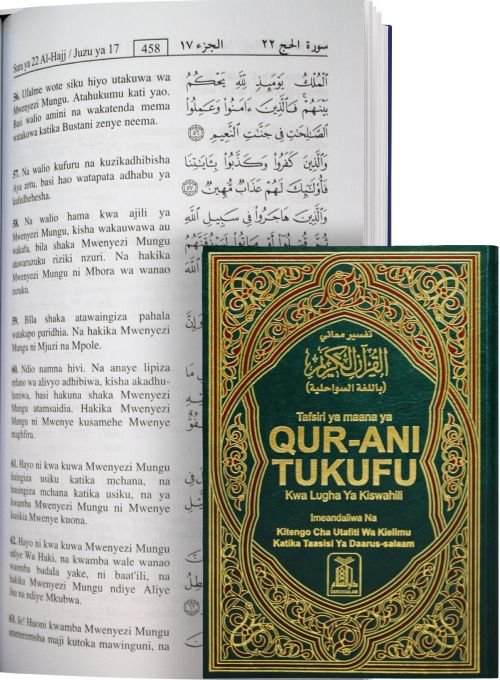 Sura ya 22 Al-Hajj / Juzu ya 17
458
الجزء ١٧
سورة الحج ٢٢
56. Ufalme wote siku hiyo utakuwa wa
Mwenyezi Mungu. Atahukumu kati yao.
Basi walio amini na wakatenda mema
watakuwa katika Bustani zenye neema.
57. Na walio kufuru na kuzikadhibisha
Aya zetu, basi hao watapata adhabu ya
kufedhehesha.
58. Na walio hama kwa ajili ya
Mwenyezi Mungu, kisha wakauwawa au
wakafa, bila shaka Mwenyezi Mungu
atawaruzuku riziki nzuri. Na hakika
Mwenyezi Mungu ni Mbora wa wanao
ruzuku.
59. BIla shaka atawaingiza pahala
watakapo paridhia. Na hakika Mwenyezi
Mungu ni Mjuzi na Mpole.
60. Ndio namna hivi. Na anaye lipiza
mfano wa alivyo adhibiwa, kisha akadhu-
lumiwa, basi hakuna shaka Mwenyezi
Mungu atamsaidia. Hakika Mwenyezi
Mungu ni Mwenye kusamehe Mwenye
maghfira.
61. Hayo ni kwa kuwa Mwenyezi Mungu
huingiza usiku katika mchana, na
huuingiza mchana katika usiku, na ya
kwamba Mwenyezi Mungu ni Mwenye
kusikia Mwenye kuona.
62. Hayo ni kwa kuwa Mwenyezi Mungu
ndiye Wa Haki, na kwamba wale wanao
waomba badala yake, ni baat'ili, na
hakika Mwenyezi Mungu ndiye Aliye
Juu na ndiye Mkubwa.
63. Je! Huoni kwamba Mwenyezi Mungu
ameteremsha maji kutoka mawinguni, na
ٱلْمُلْكُ يَوْمَئِذٍ لِّلَّهِ يَحْكُمُ
بَيْنَهُمْ فَٱلَّذِينَ ءَامَنُوا۟ وَعَمِلُوا۟
ٱلصَّـٰلِحَـٰتِ فِى جَنَّـٰتِ ٱلنَّعِيمِ ٥٦
وَٱلَّذِينَ كَفَرُوا۟ وَكَذَّبُوا۟ بِـَٔايَـٰتِنَا
فَأُو۟لَـٰٓئِكَ لَهُمْ عَذَابٌ مُّهِينٌ ٥٧
وَٱلَّذِينَ هَاجَرُوا۟ فِى سَبِيلِ ٱللَّهِ
تفسير معاني
القرآن الكريم
(باللغة السواحلية)
Tafsiri ya maana ya
QUR-ANI
TUKUFU
Kwa Lugha Ya Kiswahili
Imeandaliwa Na
Kitengo Cha Utafiti Wa Kielimu
Katika Taasisi Ya Daarus-salaam
DARUSSALAM